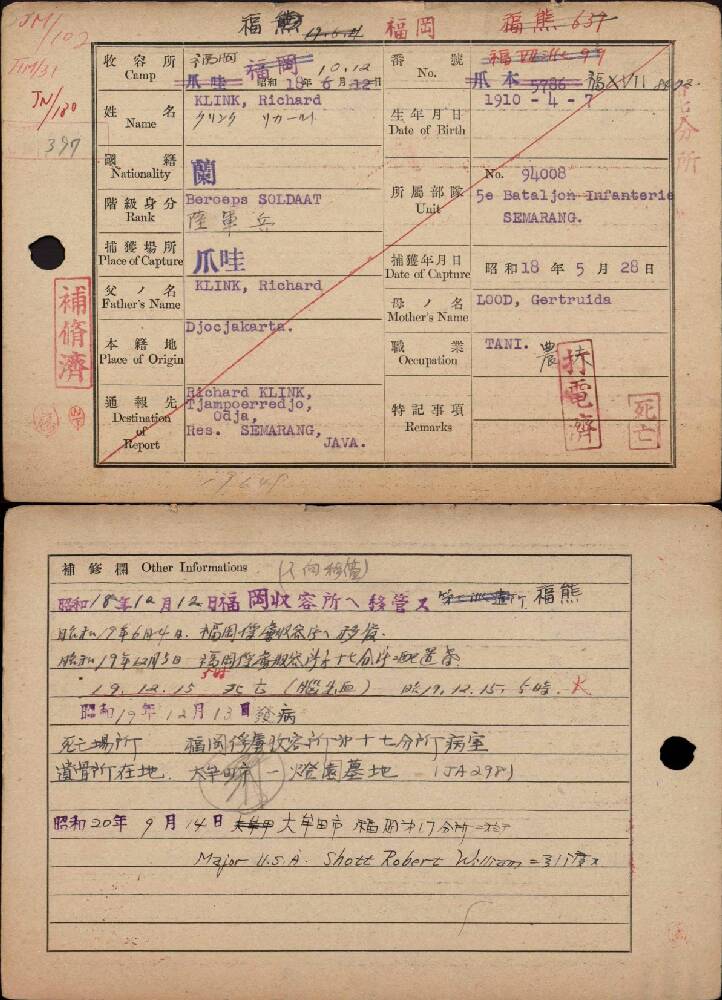 JM/102
福熊 19.6.4 福岡 福熊 637
JN/180
397
収容所 Camp 福岡 爪哇 福岡 昭和18年6月12日 10.12
番號 No. 爪本 5786
姓名 Name KLINK, Richard
クリンク リカール
生年月日 Date of Birth 1910-4-7
國籍 Nationality 蘭
階級身分 Rank Beroeps SOLDAAT
陸軍兵
所属部隊 Unit No. 94008
5e Bataljon Infanterie
SEMARANG.
分所
捕獲場所 Place of Capture 爪哇
捕獲年月日 Date of Capture 昭和18年5月28日
父ノ名 Father's Name KLINK, Richard
母ノ名 Mother's Name LOOD, Gertruida
本籍地 Place of Origin Djocjakarta.
職業 Occupation TANI. 農
通報先 Destination of Report
Richard KLINK,
Tjampoerredjo,
Odja,
Res. SEMARANG,
JAVA.
特記事項 Remarks
補脩濟
死亡
補修欄 Other Informations
昭和18年10月12日福岡収容所ヘ移管ス 福熊
昭和19年6月4日 福岡俘虜収容所ヘ移管
昭和19年12月3日 福岡俘虜収容所第十七分所ニ配置
19.12.15 死亡 昭19.12.15. 5時
昭和19年12月13日發病
死亡場所 福岡俘虜收容所第十七分所病室
遺骨所在地. 大牟田市一燈園墓地 (JA298)
昭和20年9月14日 大牟田市 福岡第17分所
Major U.S.A. Shott Robert William ニ引渡ス